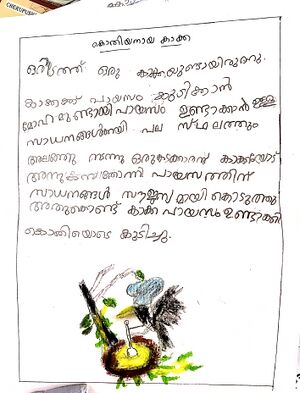 CHERUPU
കൊതിയനായ കാക്ക
ഒരിടത്ത് ഒരു കാക്കയുണ്ടായിരുന്നു.
കാക്കക്ക് പായസം കുടിക്കാൻ
മോഹമുണ്ടായി പായസം ഉണ്ടാക്കാൻ ഉള്ള
സാധനങ്ങൾക്കായി പല സ്ഥലത്തും
അലഞ്ഞു നടന്നു ഒരു കടക്കാരന് കാക്കയോട്
അനുകമ്പതോന്നി പായസത്തിന്
സാധനങ്ങൾ സൗജന്യമായി കൊടുത്തു
അതുകൊണ്ട് കാക്ക പായസം ഉണ്ടാക്കി
കൊതിയോടെ കുടിച്ചു.